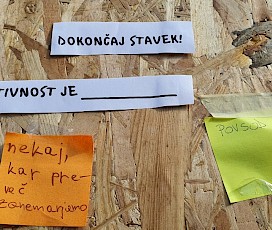 DOKONČAJ STAVEK!
TIVNOST JE ____________
nekaj,
kar pre-
več
zanemarjamo